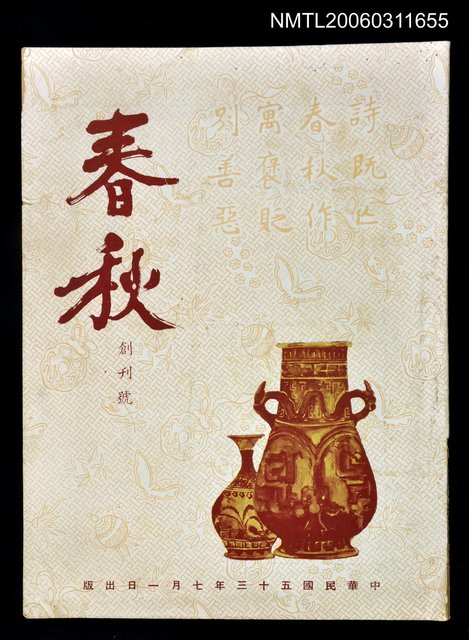 NMTL20060311655
詩既亡
春秋作
寓褒貶
別善惡
春秋
創刊號
中華民國五十三年七月一日出版